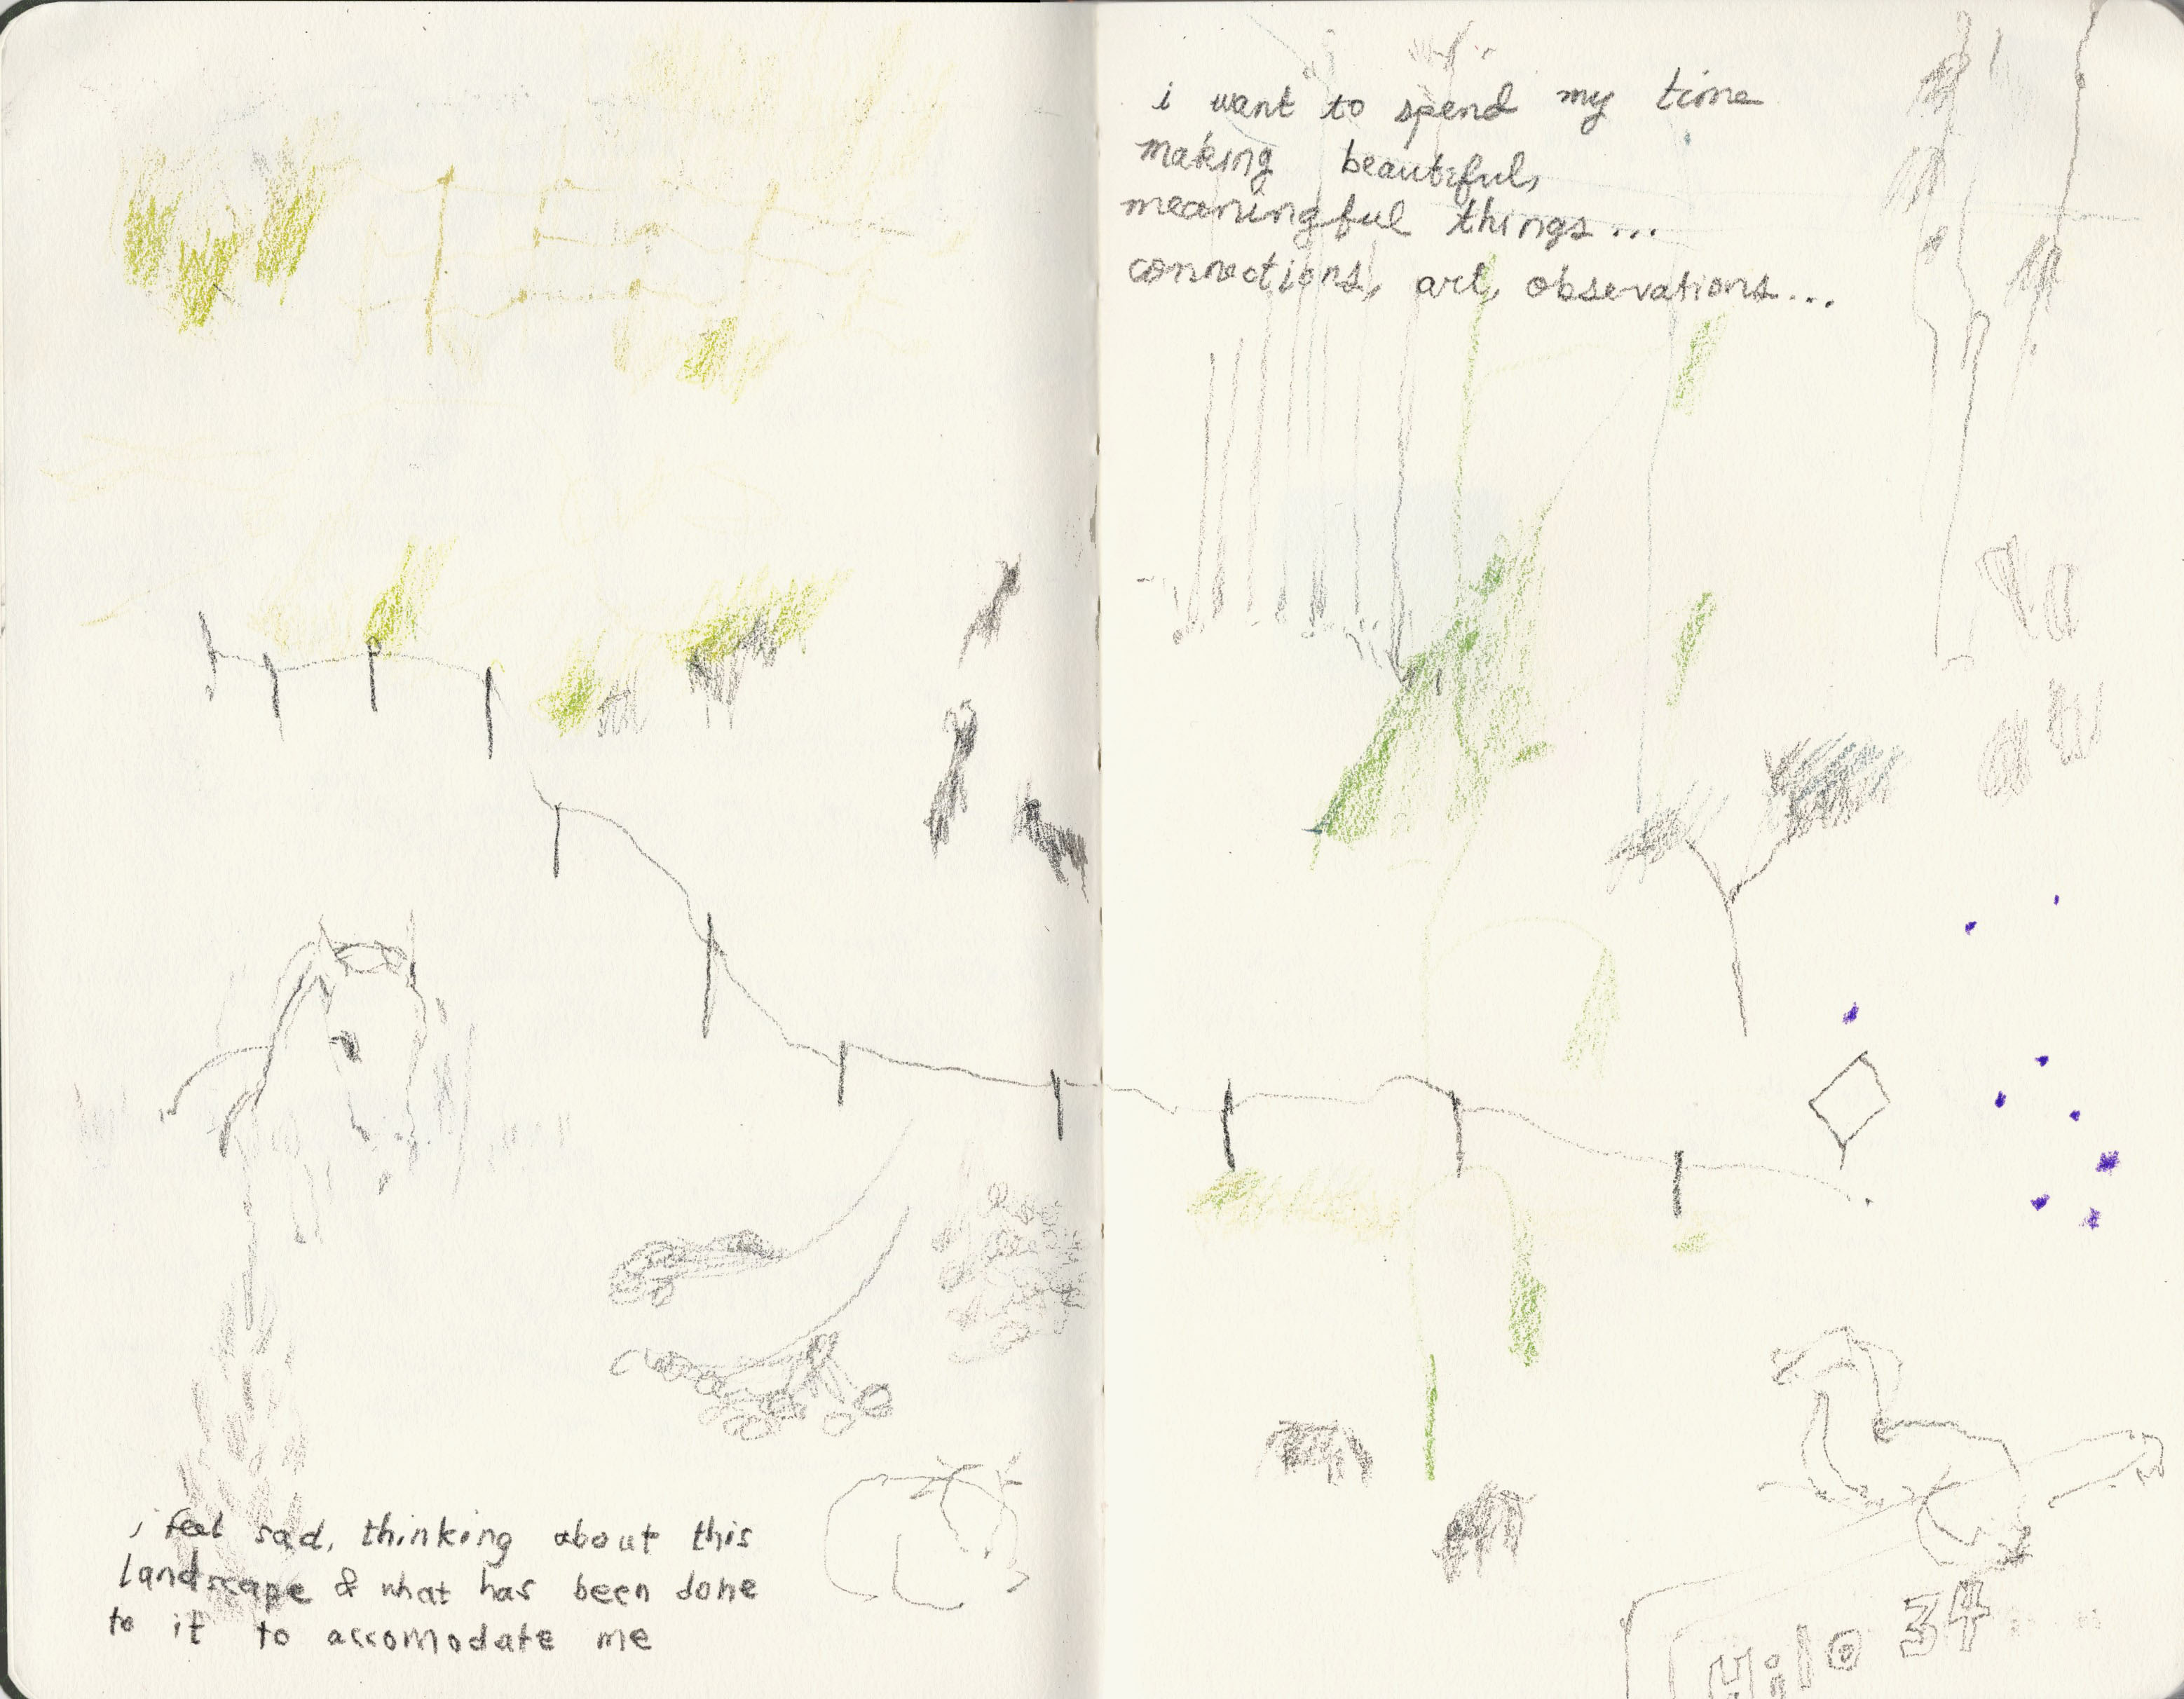 i feel sad, thinking about this
landscape & what has been done
to it to accomodate me
i want to spend my time
making beautiful,
meaningful things...
connections, art, obsevations...
Hilo 34